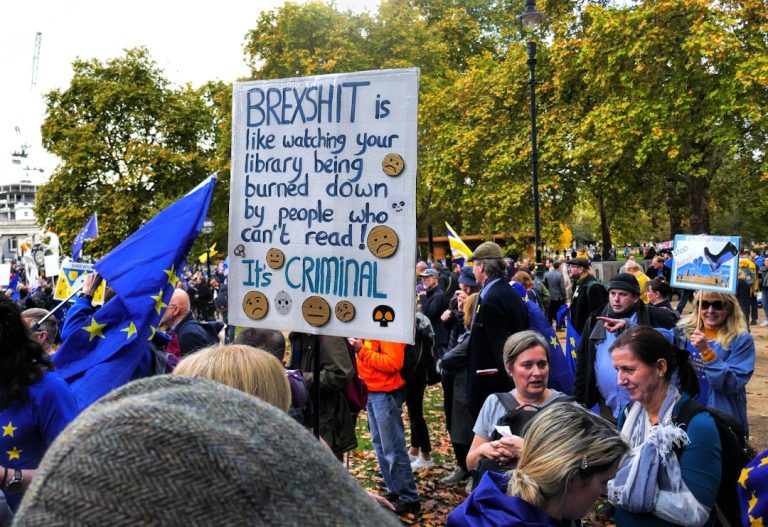 BREXSHIT is
like watching your
library being
burned down
by people who
can't read!
It's CRIMINAL